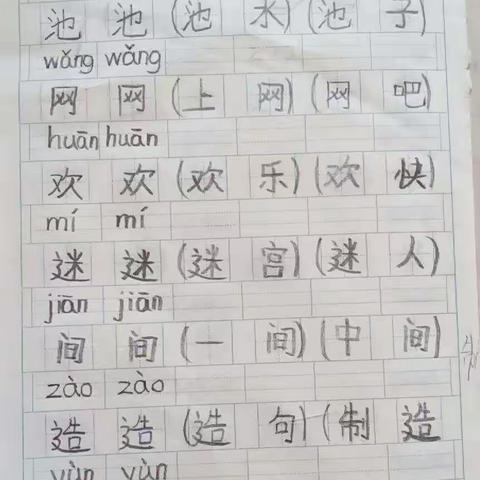 池 池 (池 水) (池 子)
wǎng wǎng
网 网 (上 网) (网 吧)
huān huān
欢 欢 (欢 乐) (欢 快)
mí mí
迷 迷 (迷 宫) (迷 人)
jiān jiān
间 间 (一 间) (中 间)
zào zào
造 造 (造 句) (制 造
yùn yùn